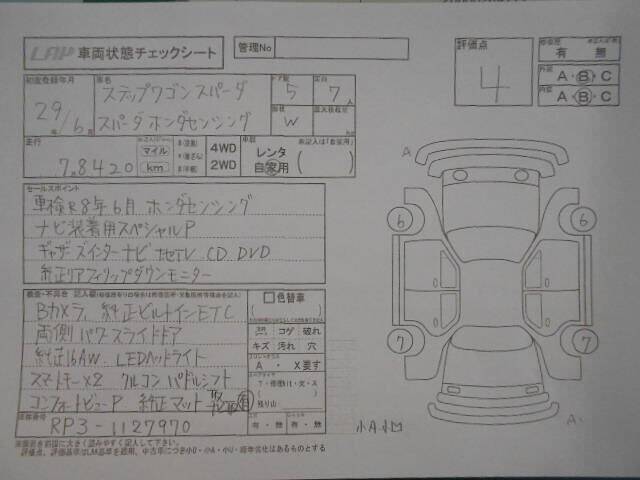 LAP 車両状態チェックシート
管理No
評価点
4
有 無
外装 A・B・C
内装 A・B・C
初度登録年月
29年 6月
車名
ステップワゴンスパーダ
スパーダ ホンダセンシング
ドア数
5
定員
7人
W
走行
78420
マイル
km
4WD
2WD
車歴
レンタ
自家用
セールスポイント
車検R8年6月 ホンダセンシング
ナビ装着用スペシャルP
ギャザーズインターナビ ナビTV CD DVD
純正リアフィリップダウンモニター
色替車
Bカメラ、純正ビルトインETC
両側パワースライドドア
コゲ 破れ
キズ 汚れ 穴
純正16AW. LEDヘッドライト
A ・ X要す
スマートキー×2 クルコン パドルシフト
コンフォートビューP 純正マット
残り山
車台番号
RP3-1127970
有・無
有・無
A
6
6
7
7
A
小A.小凹